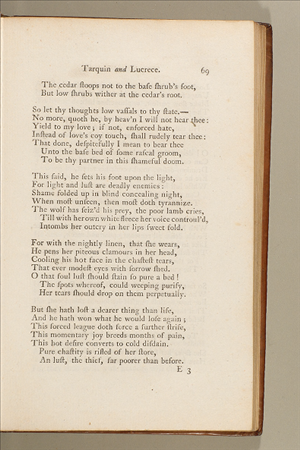 Tarquin and Lucrece. 69
The cedar ſtoops not to the baſe ſhrub's foot,
But low ſhrubs wither at the cedar's root.
So let thy thoughts low vaſſals to thy ſtate.—
No more, quoth he, by heav'n I will not hear thee:
Yield to my love; if not, enforced hate,
Inſtead of love's coy touch, ſhall rudely tear thee:
That done, deſpitefully I mean to bear thee
Unto the baſe bed of ſome raſcal groom,
To be thy partner in this ſhameful doom.
This ſaid, he ſets his foot upon the light,
For light and luſt are deadly enemies:
Shame folded up in blind concealing night,
When moſt unſeen, then moſt doth tyrannize.
The wolf has ſeiz'd his prey, the poor lamb cries,
Till with her own white fleece her voice controul'd,
Intombs her outcry in her lips ſweet fold.
For with the nightly linen, that ſhe wears,
He pens her piteous clamours in her head,
Cooling his hot face in the chaſteſt tears,
That ever modeſt eyes with ſorrow ſhed.
O that foul luſt ſhould ſtain ſo pure a bed!
The ſpots whereof, could weeping purify,
Her tears ſhould drop on them perpetually.
But ſhe hath loſt a dearer thing than life,
And he hath won what he would loſe again;
This forced league doth force a further ſtrife,
This momentary joy breeds months of pain,
This hot deſire converts to cold diſdain.
Pure chaſtity is rifled of her ſtore,
An luſt, the thief, far poorer than before.
E 3